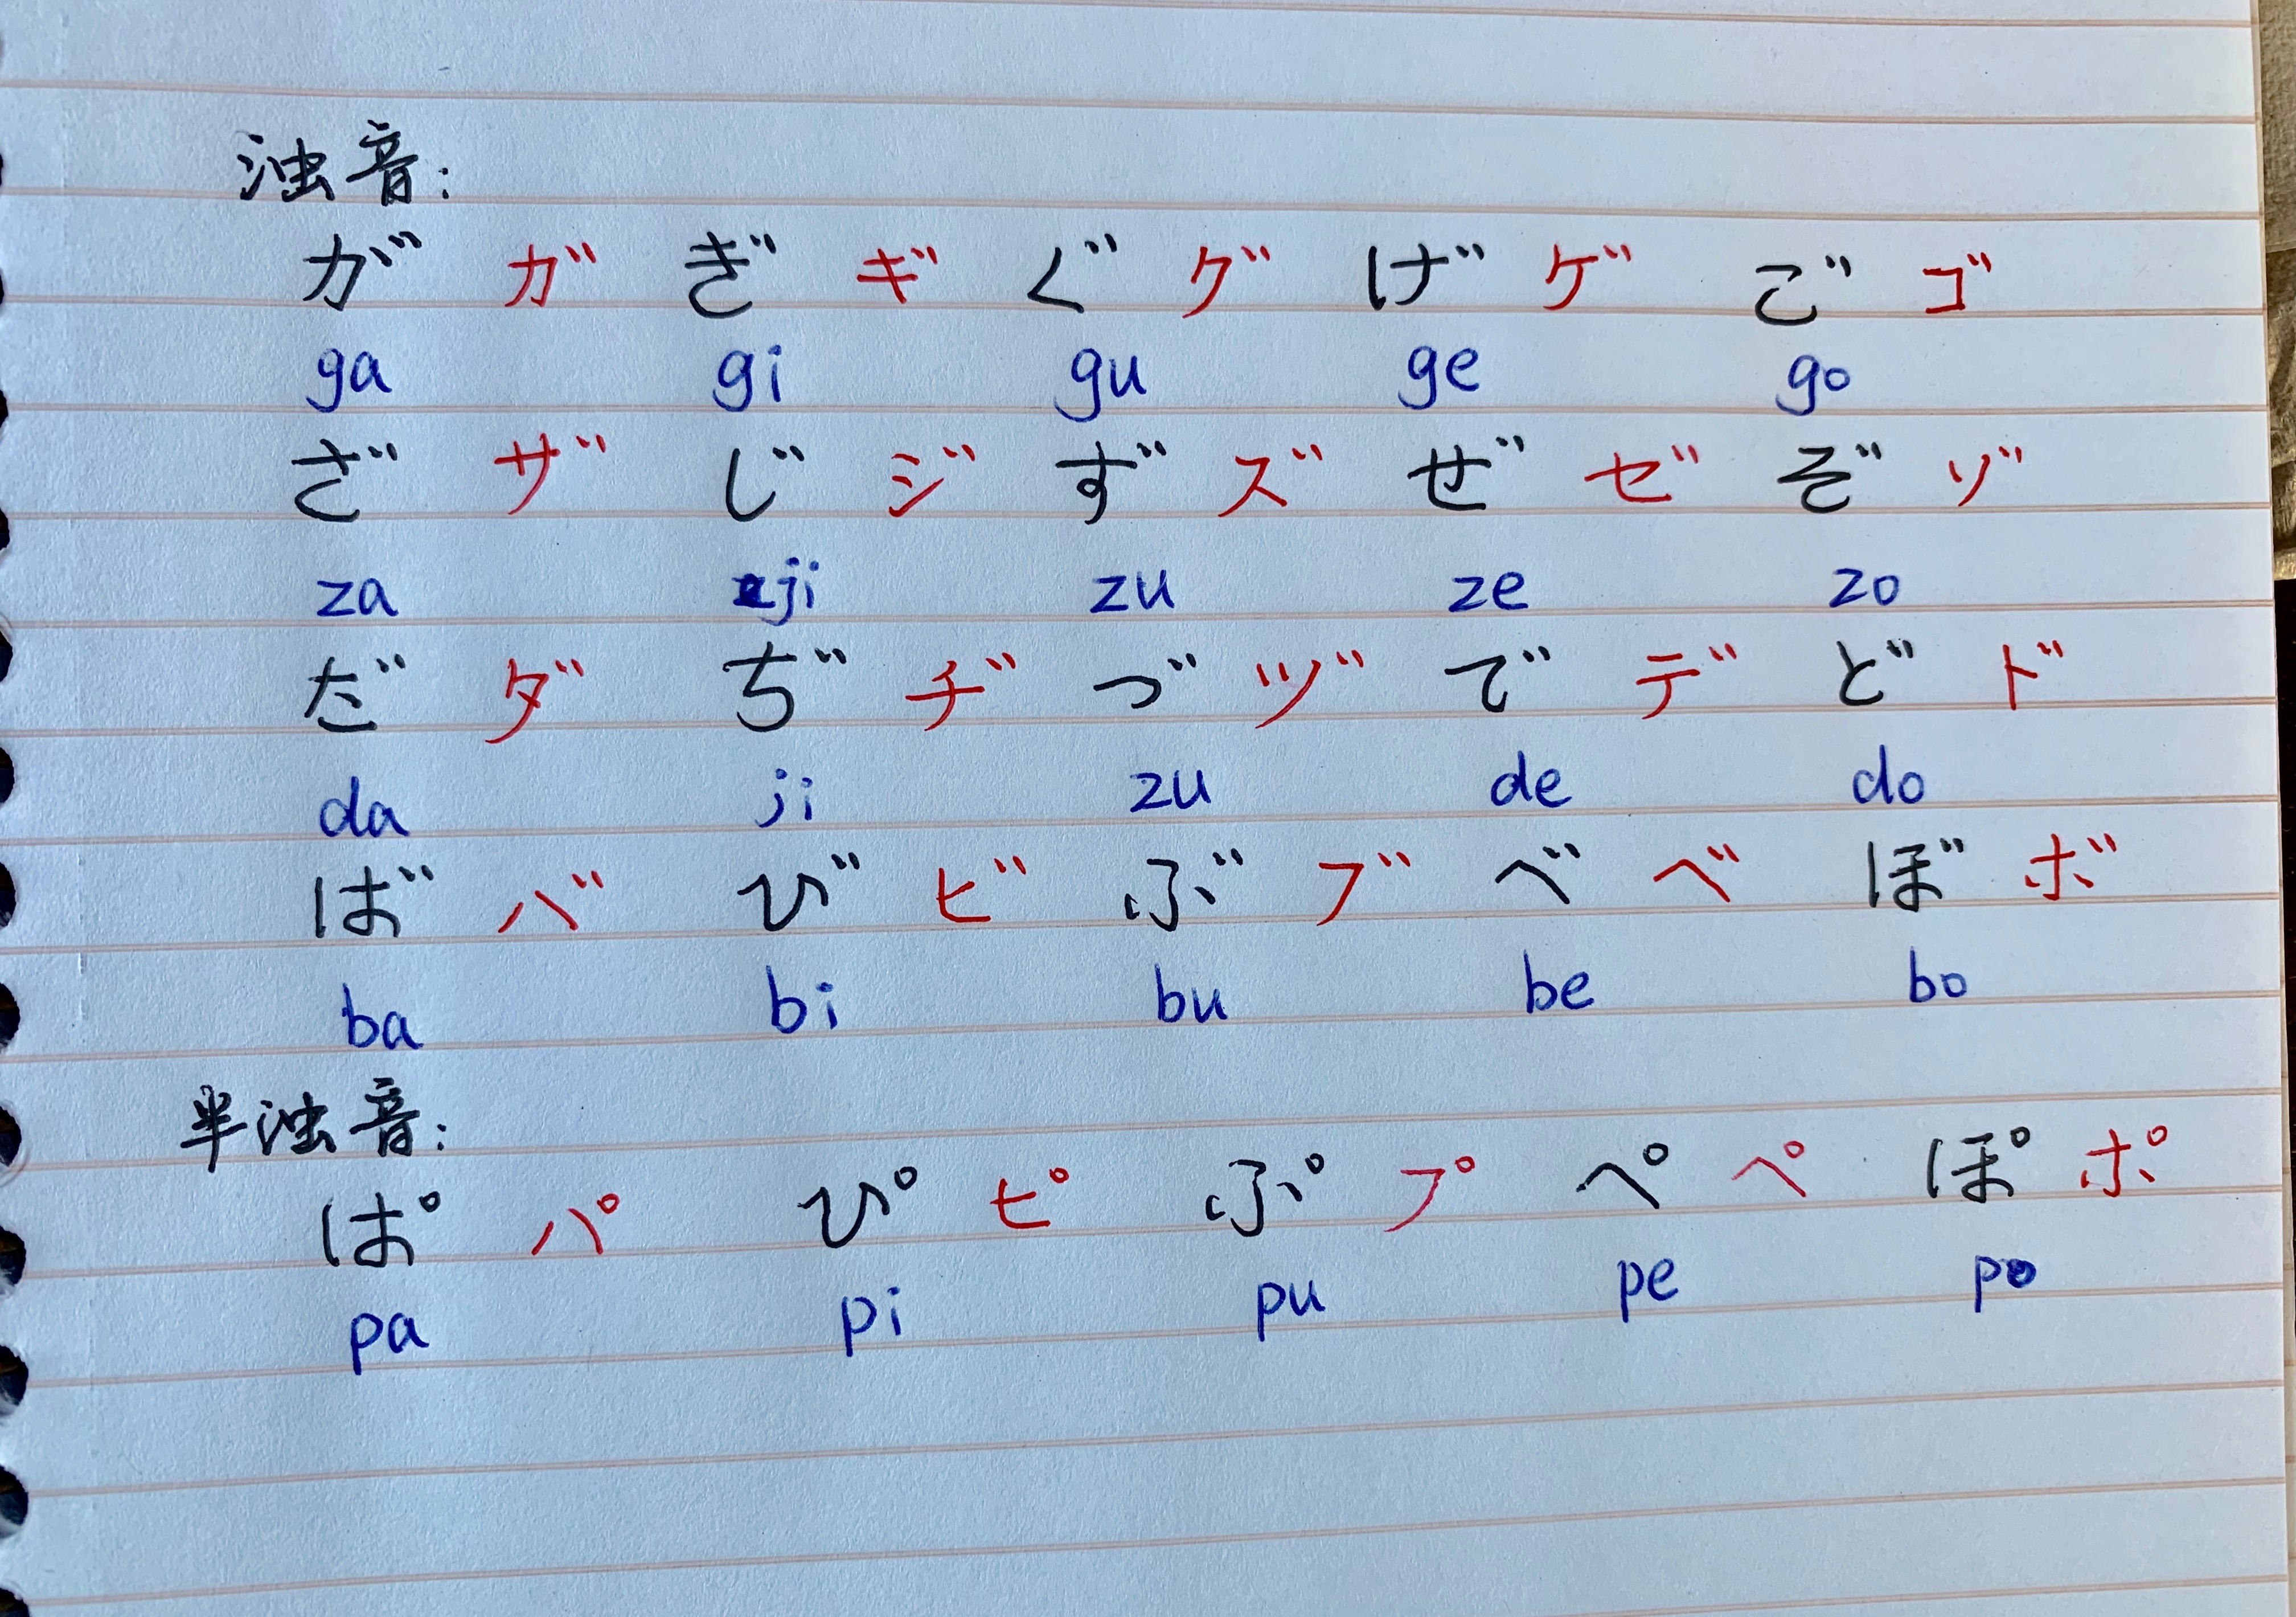 浊音:
が ガ ぎ ギ ぐ グ げ ゲ ご ゴ
ga gi gu ge go
ざ ザ じ ジ ず ズ ぜ ゼ ぞ ゾ
za ji zu ze zo
だ ダ ぢ ヂ づ ヅ で デ ど ド
da ji zu de do
ば バ び ビ ぶ ブ べ ベ ぼ ボ
ba bi bu be bo
半浊音:
ぱ パ ぴ ピ ぷ プ ぺ ペ ぽ ポ
pa pi pu pe po